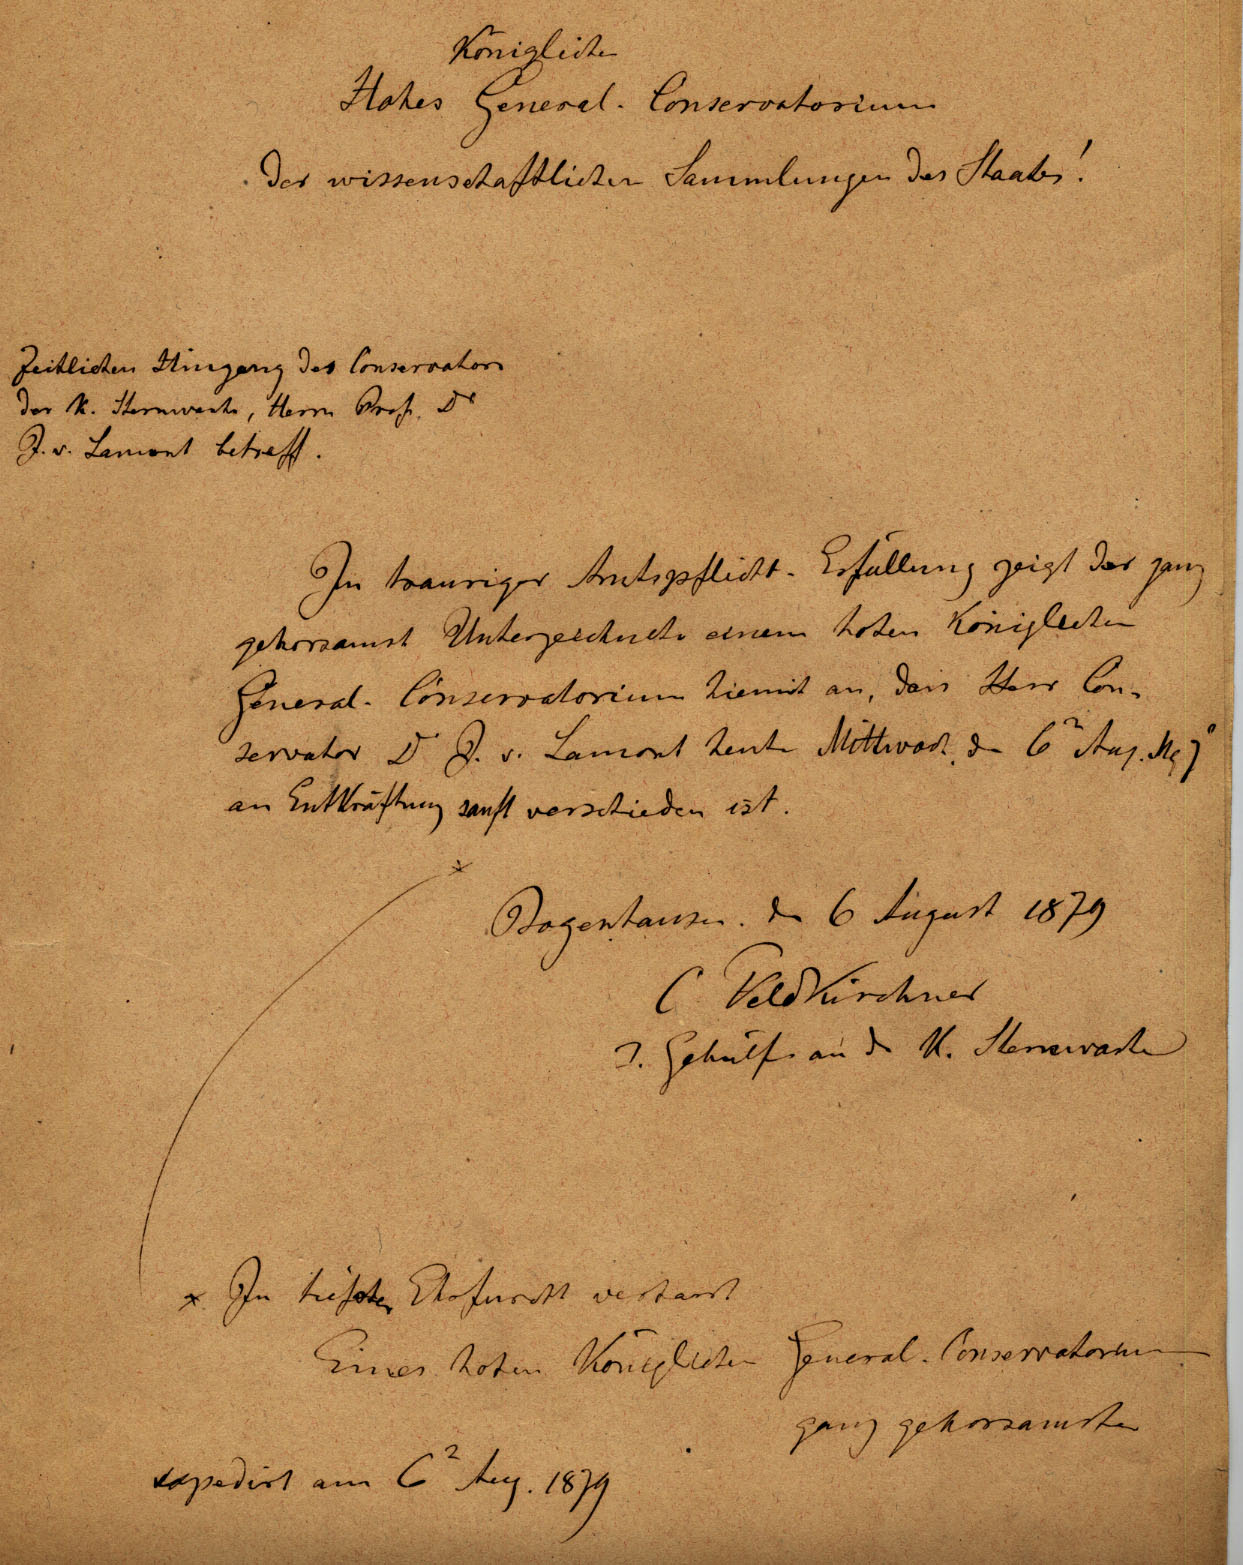 Königliches
Hohes General-Conservatorium
der wissenschaftlichen Sammlungen des Staates!
Zeitlichen Hingang des Conservators
der K. Sternwarte, Herrn Prof. Dr
J. v. Lamont betreff.
In trauriger Amtspflicht-Erfüllung zeigt der ganz
gehorsamst Unterzeichnete einem hohen Königlichen
General-Conservatorium hiemit an, dass Herr Con-
servator Dr J. v. Lamont heute Mittwoch, den 6 Aug. Mg
an Entkräftung sanft verschieden ist.
Bogenhausen. den 6 August 1879
C Feldkirchner
I. Gehülfe an der K. Sternwarte
x In tiefster Ehrfurcht verharrt
Eines hohen Königlichen General-Conservatorium
ganz gehorsamster
expedirt am 6 Aug. 1879